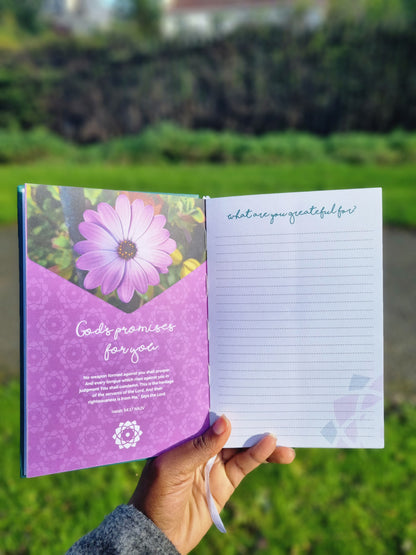 God's promises
for you
No weapon formed against you shall prosper,
And every tongue which rises against you in
judgment You shall condemn. This is the heritage
of the servants of the Lord, And their
righteousness is from Me," Says the Lord.
Isaiah 54:17 NKJV
what are you greateful for?